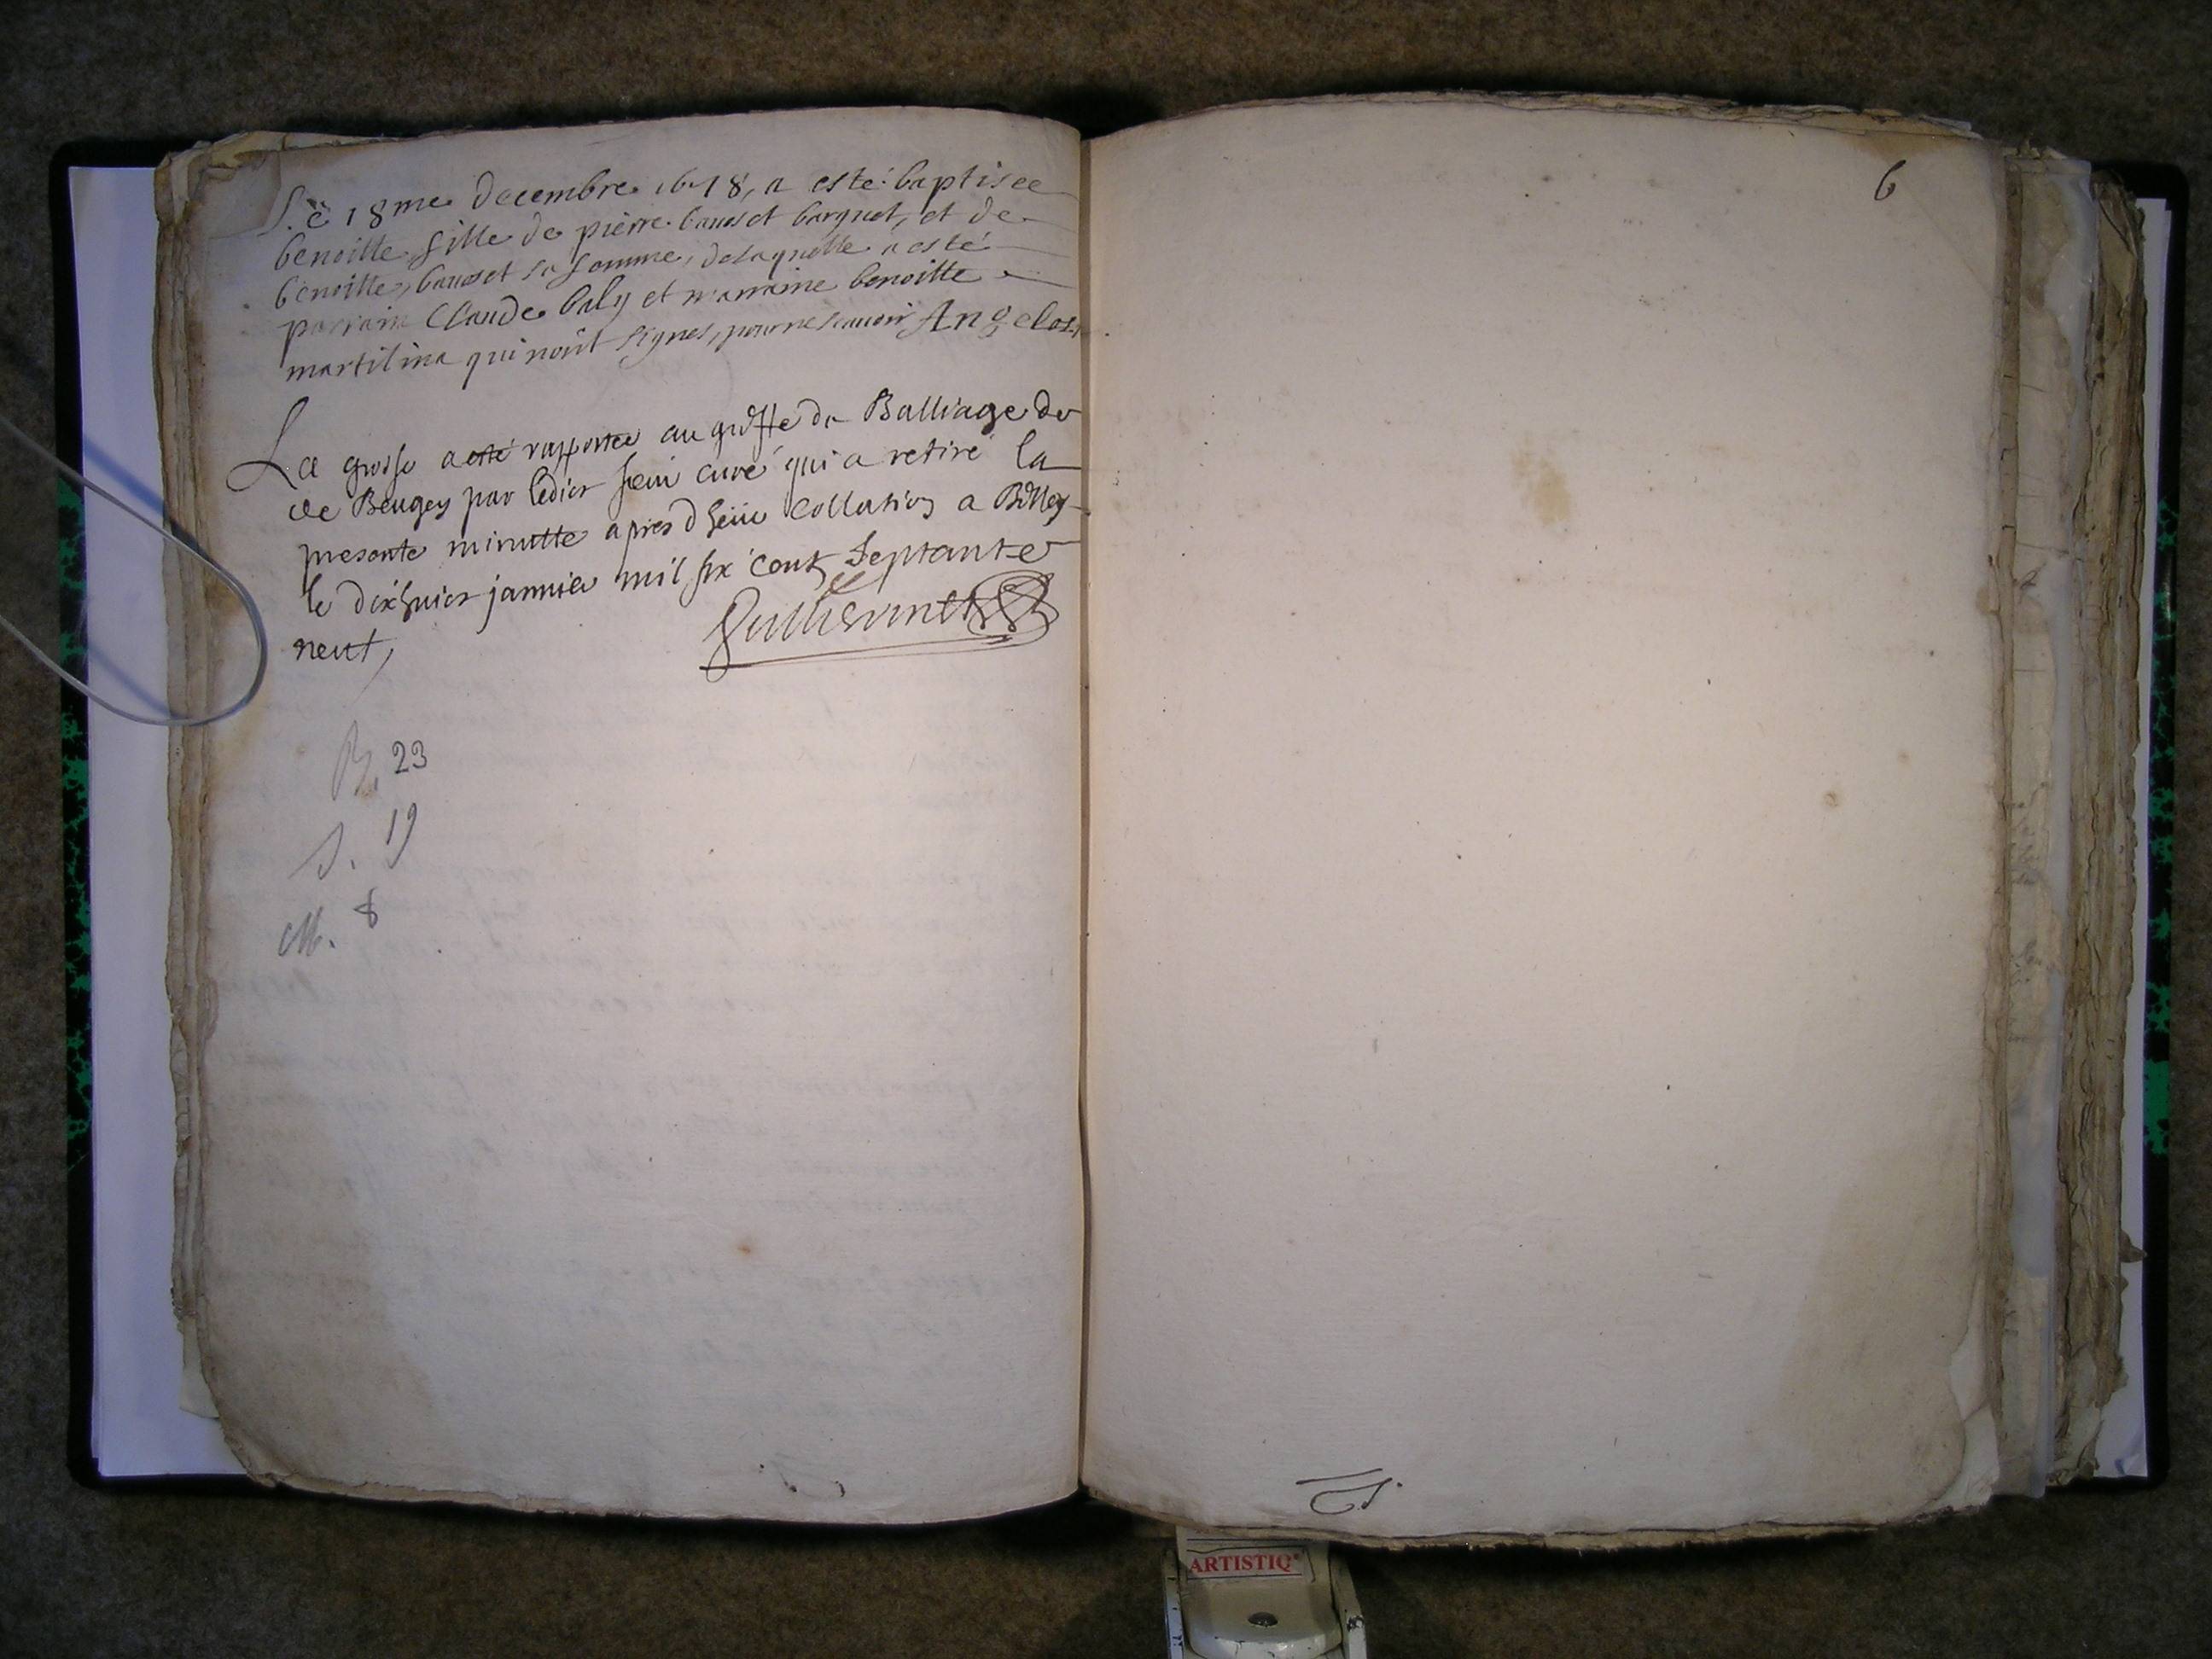 Le 18me decembre 1678, a esté baptisee
benoitte, fille de pierre bauset barquet, et de
benoitte, bauset sa femme, de laquelle a esté
parrain Claude baly et marraine benoitte
martilina qui n'ont signes, pour ne scauoir Angelos
La grosse a esté rapportee au greffe du Balliage de
de Beugey par ledict sieur curé qui a retiré la
presente minutte apres dheue Collation a Belley
le dixhuict januier mil six cent septante
neuf,
Guillierminet
B. 23
S. 19
M. 8
6
ARTISTIQ